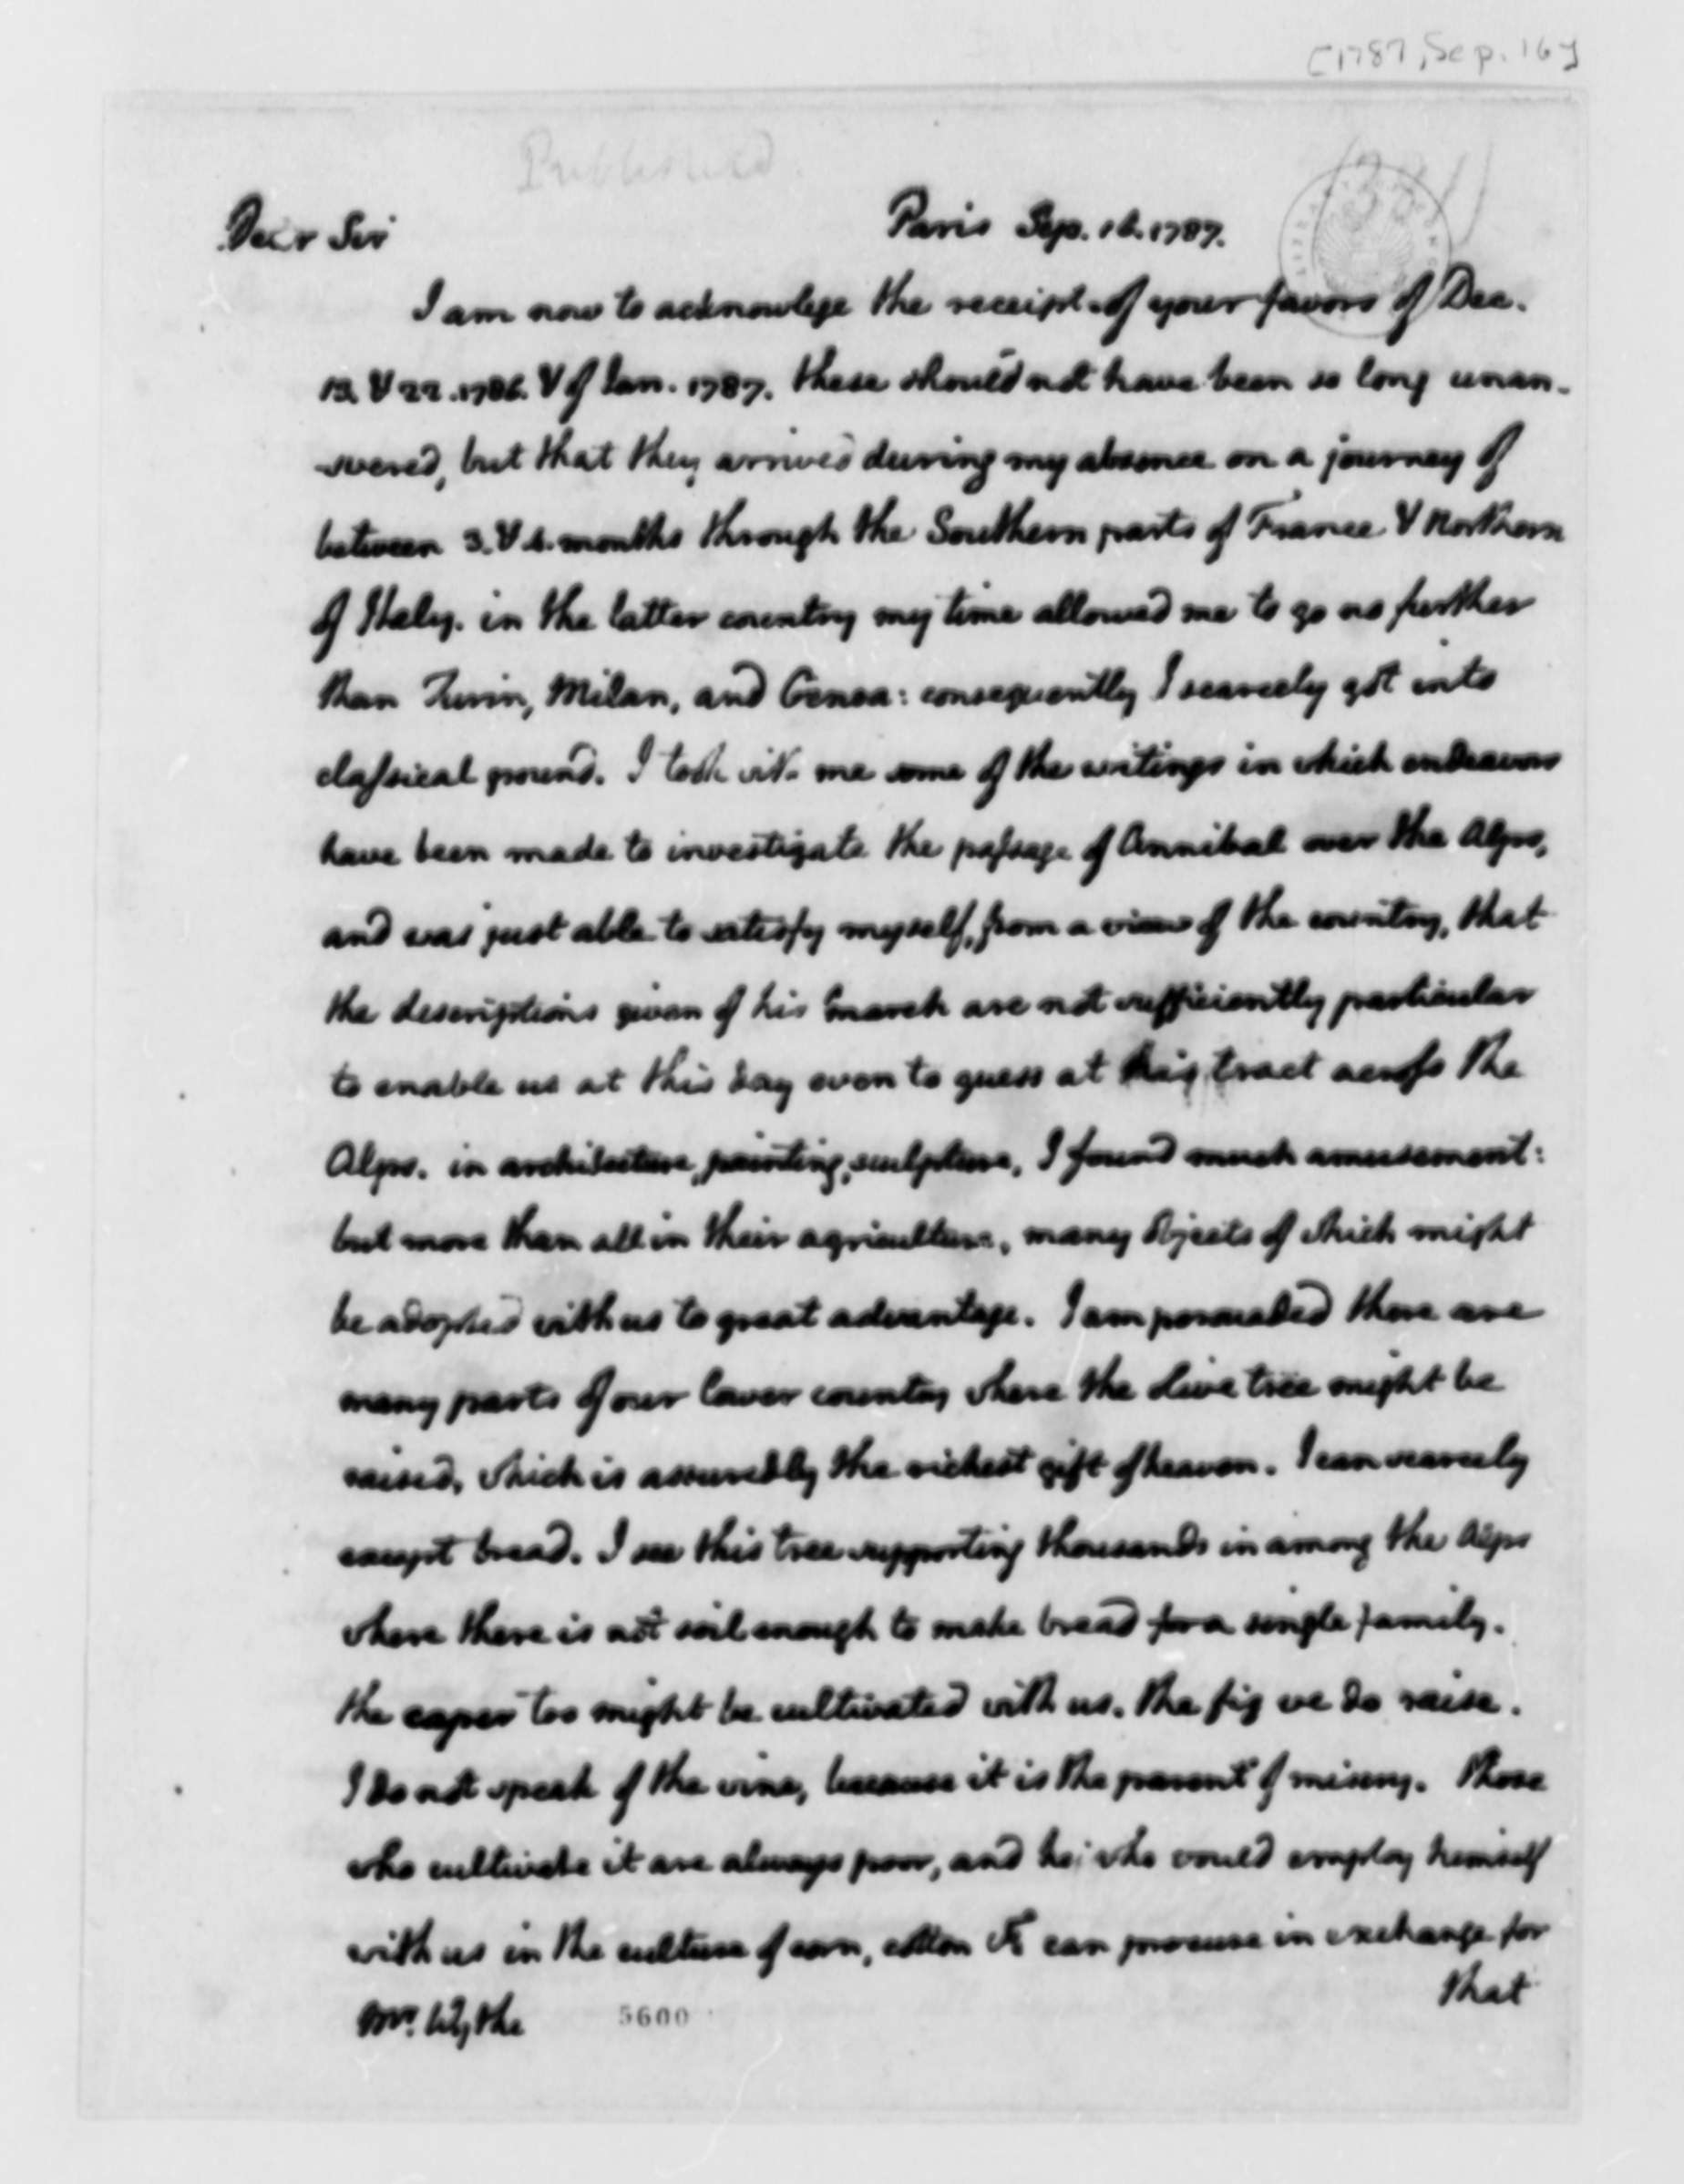 [1787, Sep. 16]
Published.
Dear Sir
Paris Sep. 16. 1787.
I am now to acknowlege the receipt of your favors of Dec.
13. & 22. 1786. & of Jan. 1787. these should not have been so long unan-
swered, but that they arrived during my absence on a journey of
between 3. & 4. months through the Southern parts of France & Northern
of Italy. in the latter country my time allowed me to go no further
than Turin, Milan, and Genoa: consequently I scarcely got into
classical ground. I took with me some of the writings in which endeavors
have been made to investigate the passage of Annibal over the Alps,
and was just able to satisfy myself, from a view of the country, that
the descriptions given of his march are not sufficiently particular
to enable us at this day even to guess at his tract across the
Alps. in architecture, painting, sculpture, I found much amusement:
but more than all in their agriculture, many objects of which might
be adopted with us to great advantage. I am persuaded there are
many parts of our lower country where the olive tree might be
raised, which is assuredly the richest gift of heaven. I can scarcely
except bread. I see this tree supporting thousands in among the Alps
where there is not soil enough to make bread for a single family.
the caper too might be cultivated with us. the fig we do raise.
I do not speak of the vine, because it is the parent of misery. those
who cultivate it are always poor, and he who would employ himself
with us in the culture of corn, cotton &c can procure in exchange for
that
Mr. Wythe
5600